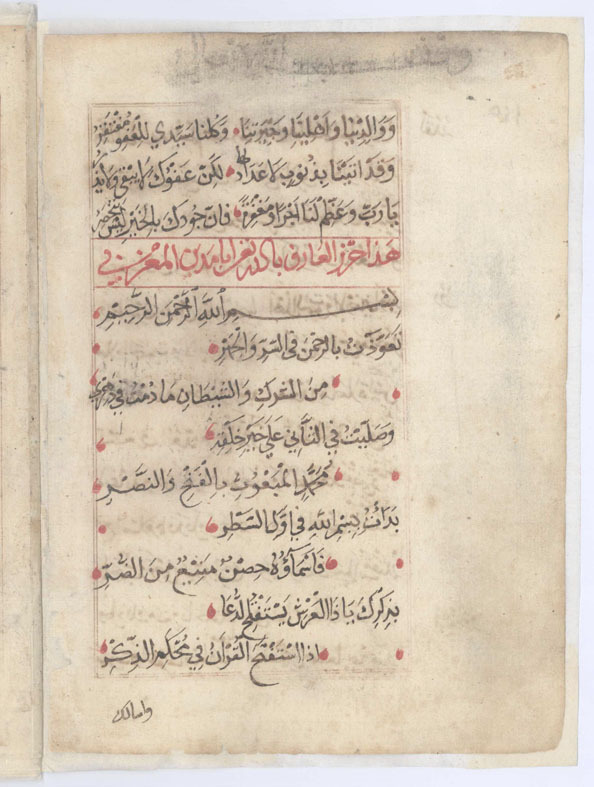 ووالدينا واهلينا وجيرتنا وكلنا سيدي للعفو مفتقر
وقد اتينا بذنوب لا عداد لها لكن عفوك لا يبقي ولا يذر
يا رب وعظم لنا اجرا ومغفرة فان جودك بالخير ليس ينحصر
هذا حرز العارف بالله تعالى ابا مدين المغربي
بسم الله الرحمن الرحيم
تعوذت بالرحمن في السر والجهر
من الشرك والشيطان ما دمت في دهري
وصليت في الثاني على خير خلقه
محمد المبعوث بالفتح والنصر
بدات ببسم الله في اول السطر
فاسماؤه حصن منيع من الضر
بذكرك يا ذا العرش يستفتح الدعا
اذا استفتح القران في محكم الذكر
واسالك